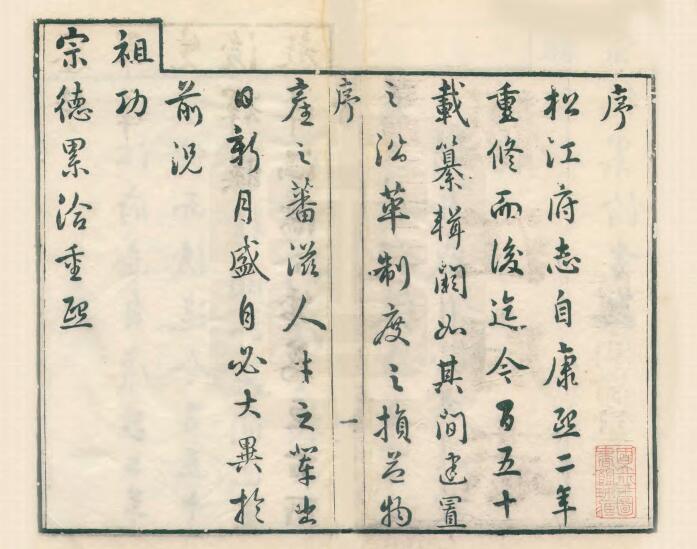 序
松江府志自康熙二年
重修而後迄今百五十
載纂輯闕如其間建置
之沿革制度之損益物
序
一
產之蕃滋人才之輩出
日新月盛自必大異於
前況
祖功
宗德累洽重熙